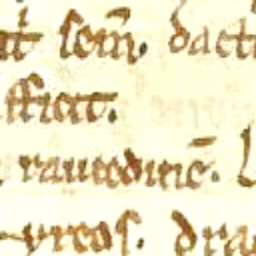 sem̄. dact
fficit.
raucedinē. L
yreos. dra